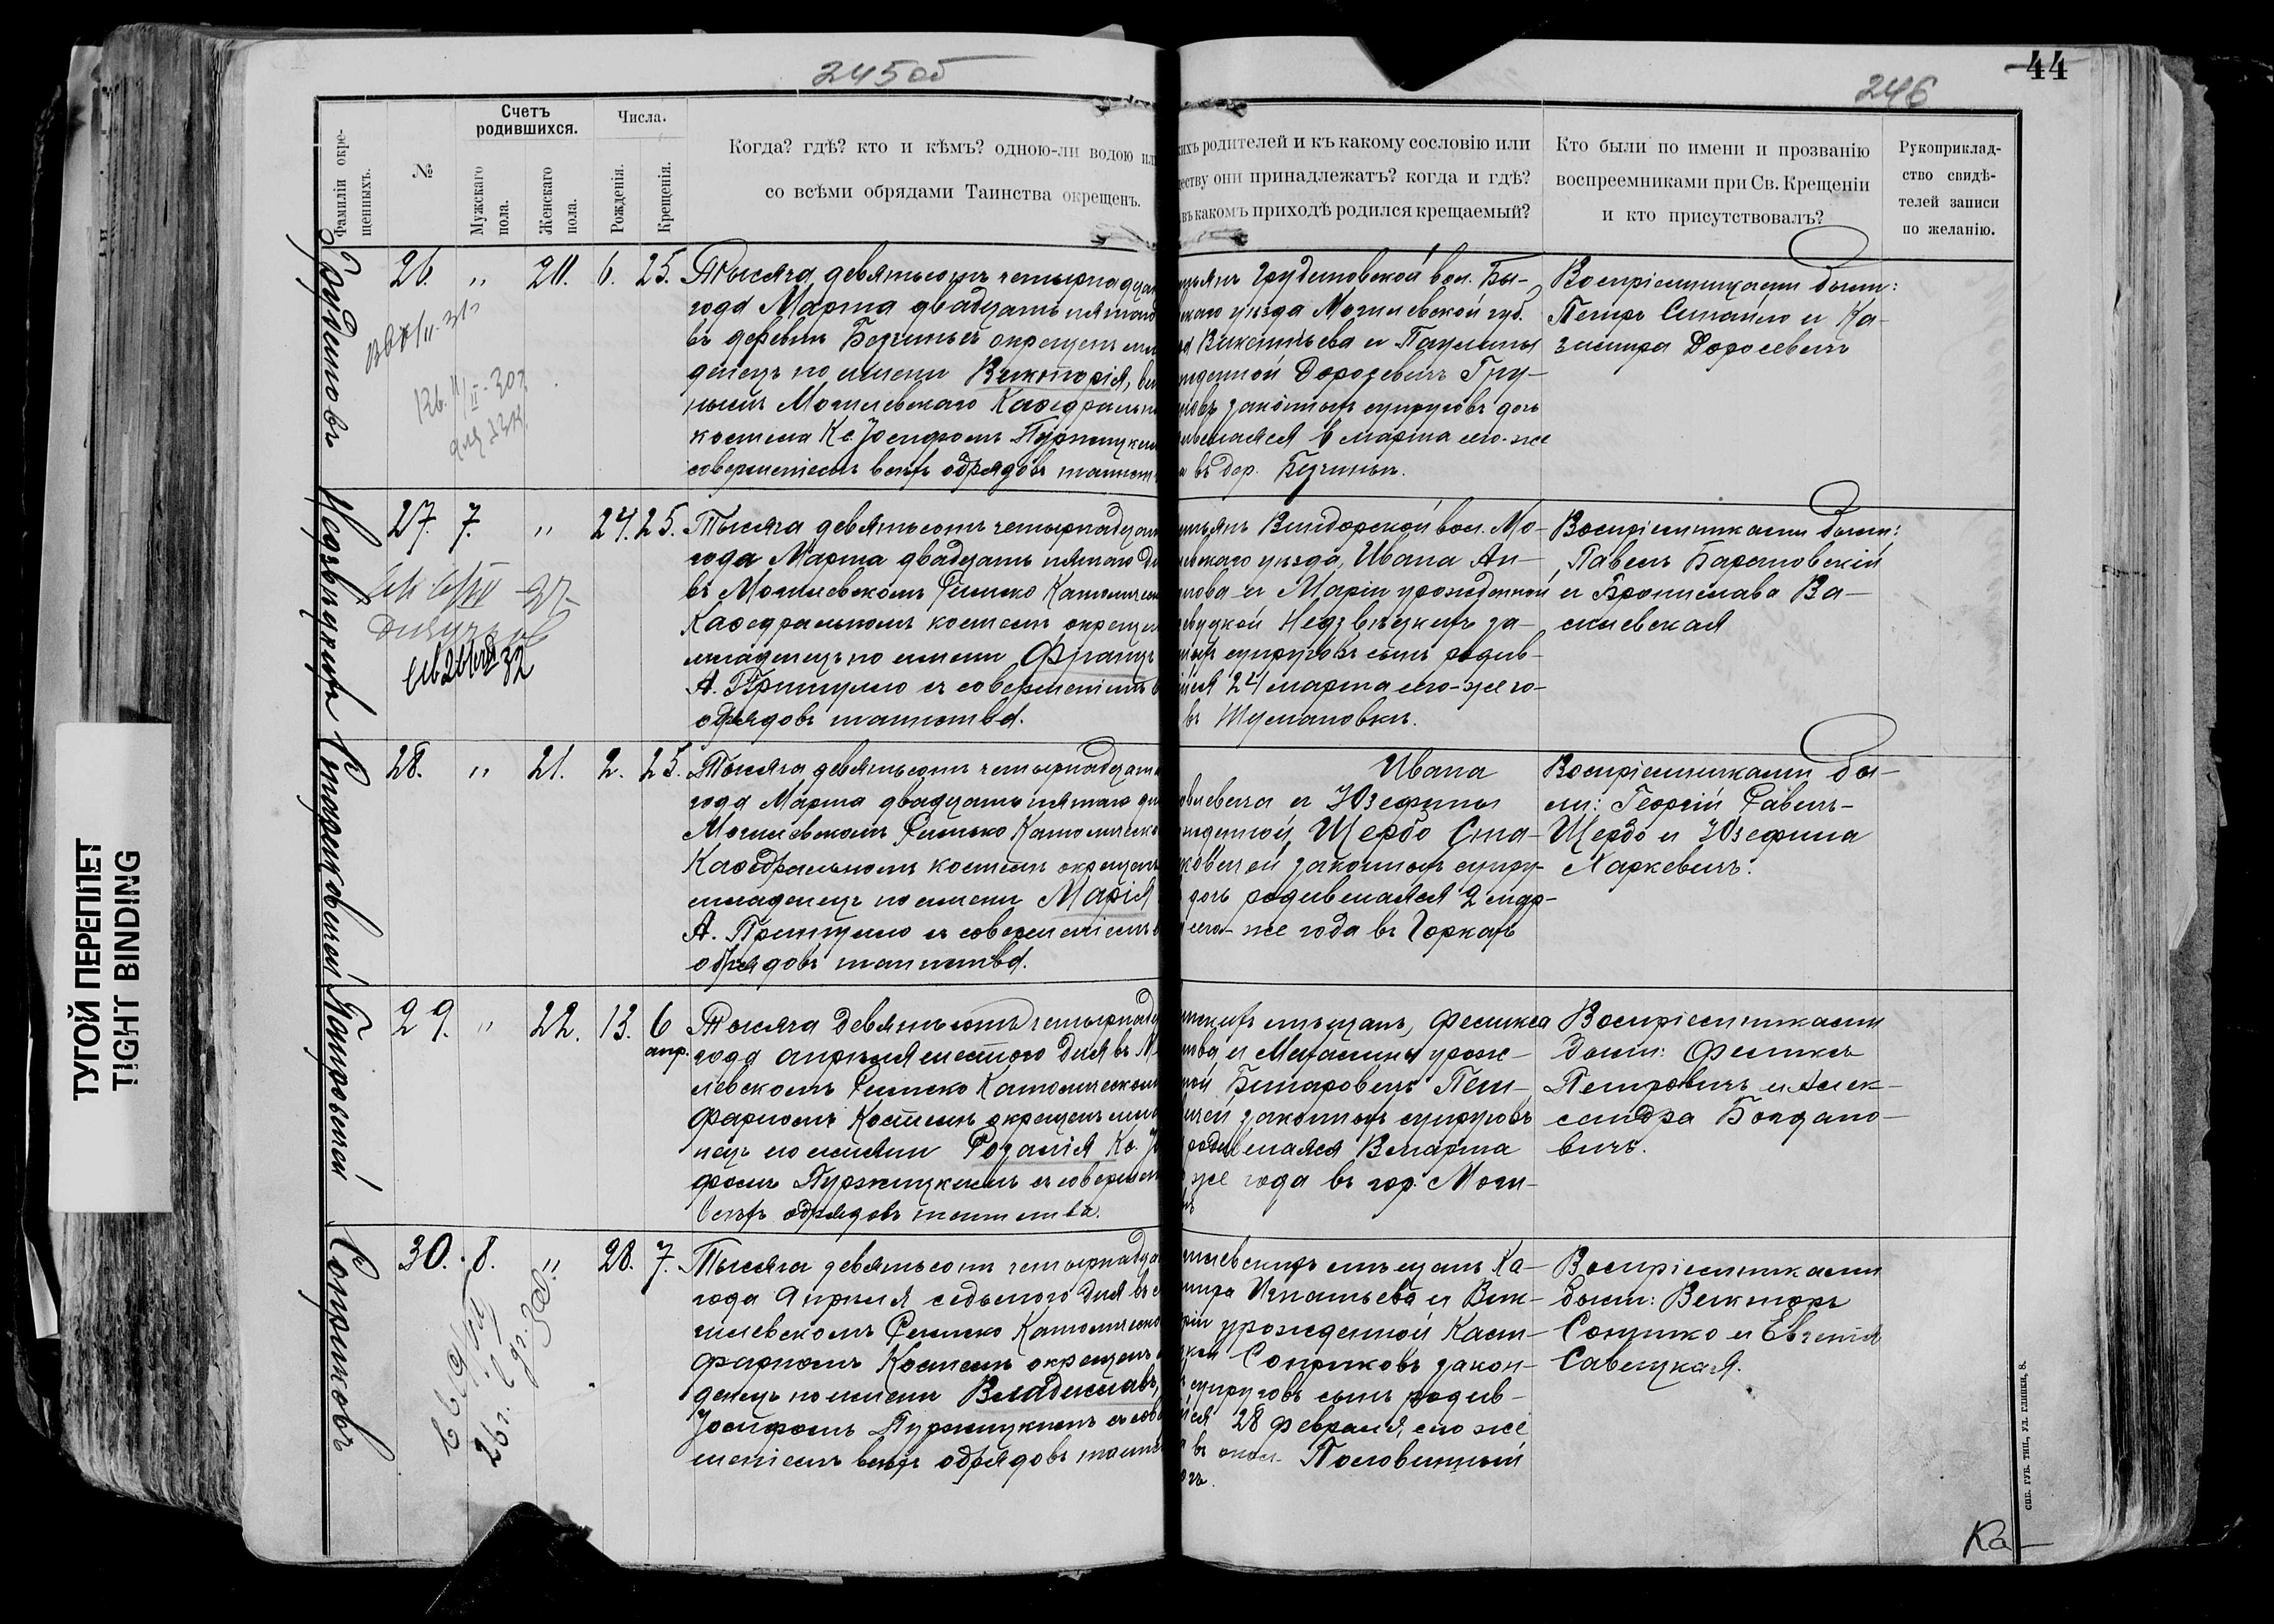 245 об
246
44
Фамиліи окрещенныхъ.
№
Счетъ родившихся.
Мужскаго пола.
Женскаго пола.
Числа.
Рожденія.
Крещенія.
Когда? гдѣ? кто и кѣмъ? одною-ли водою или
со всѣми обрядами Таинства окрещенъ.
родителей и къ какому сословію или
они принадлежатъ? когда и гдѣ?
въ какомъ приходѣ родился крещаемый?
Кто были по имени и прозванію
воспреемниками при Св. Крещеніи
и кто присутствовалъ?
Рукоприклад-
ство свидѣ-
телей записи
по желанію.
26. " 20. 6. 25.
Тысяча девятьсотъ четырнадца
года Марта двадцать пятаго
въ деревнѣ окрещенъ мла
денецъ по имени Викторія,
Могилевскаго Каѳедральн
костела Кс. Іосифомъ Пуржицким
совершеніемъ всѣхъ обрядовъ таинст
Грудиновской вол. Бы-
скаго уѣзда Могилевской губ.
Викентьева и Паулины
Дорозевичъ Гру-
законныхъ супруговъ дочь
родившаяся 6 марта сего-же
въ дер.
Воспріемниками были:
Петръ и Ка-
зимира Доросевичъ
Недзвѣцкій
27. 7. " 24. 25.
Тысяча девятьсотъ четырнадцат
года Марта двадцать пятаго дн
въ Могилевскомъ Римско Католическ
Каѳедральномъ костелѣ окрещен
младенецъ по имени Францъ
А. съ совершеніемъ в
обрядовъ таинства.
Вендорожской вол. Мо-
левскаго уѣзда, Ивана Ан-
нова и Маріи урожденной
Недзвѣцкихъ за-
супруговъ сынъ родив-
шійся 24 марта сего-же го-
въ
Воспріемниками были:
Павелъ Барановскій
и Бронислава Ва-
силевская
Станкевичей
28. " 21. 2. 25.
Тысяча девятьсотъ четырнадцат
года Марта двадцать пятаго дня
Могилевскомъ Римско Католическо
Каѳедральномъ костелѣ окрещенъ
младенецъ по имени Марія
А. съ совершеніемъ в
обрядовъ таинства.
Ивана
и Юзефины
жденной Щербо Ста-
ковичей законныхъ супру-
дочь родившаяся 2 мар-
сего-же года въ Горкахъ
Воспріемниками бы-
ли: Георгій Равичъ-
Щербо и Юзефина
Харкевичъ.
Петровичей
29. " 22. 13. 6 апр.
Тысяча девятьсотъ четырнадц
года апрѣля шестого дня въ М
левскомъ Римско Католическомъ
фарномъ Костелѣ окрещенъ мла
нецъ по имени Розалія Кс. Іо
фомъ Пуржицкимъ съ совершен
всѣхъ обрядовъ таинства.
мѣщанъ, Феликса
и Магдалины урож-
ной Пет-
вичей законныхъ супруговъ
родившаяся 13 марта
же года въ гор. Моги-
Воспріемниками
были: Феликсъ
Петровичъ и Алек-
сандра Богдано-
вичъ.
30. 8. " 28. 7.
Тысяча девятьсотъ четырнадца
года Апрѣля седьмого дня въ
гилевскомъ Римско Католическо
фарномъ Костелѣ окрещенъ
денецъ по имени Владиславъ,
Іосифомъ Пуржицкимъ съ сов
шеніемъ всѣхъ обрядовъ таинс
гилевскихъ мѣщанъ Ка-
мира Игнатьева и Вик-
ріи урожденной
закон-
супруговъ сынъ родив-
шійся 28 февраля, сего же
въ Половинный
Воспріемниками
были: Викторъ
и Евгенія
Савицкая.
Ка-
ТУГОЙ ПЕРЕПЛЕТ
TIGHT BINDING
СПБ. ГУБ. ТИП., УЛ. ГЛИНКИ, 8.